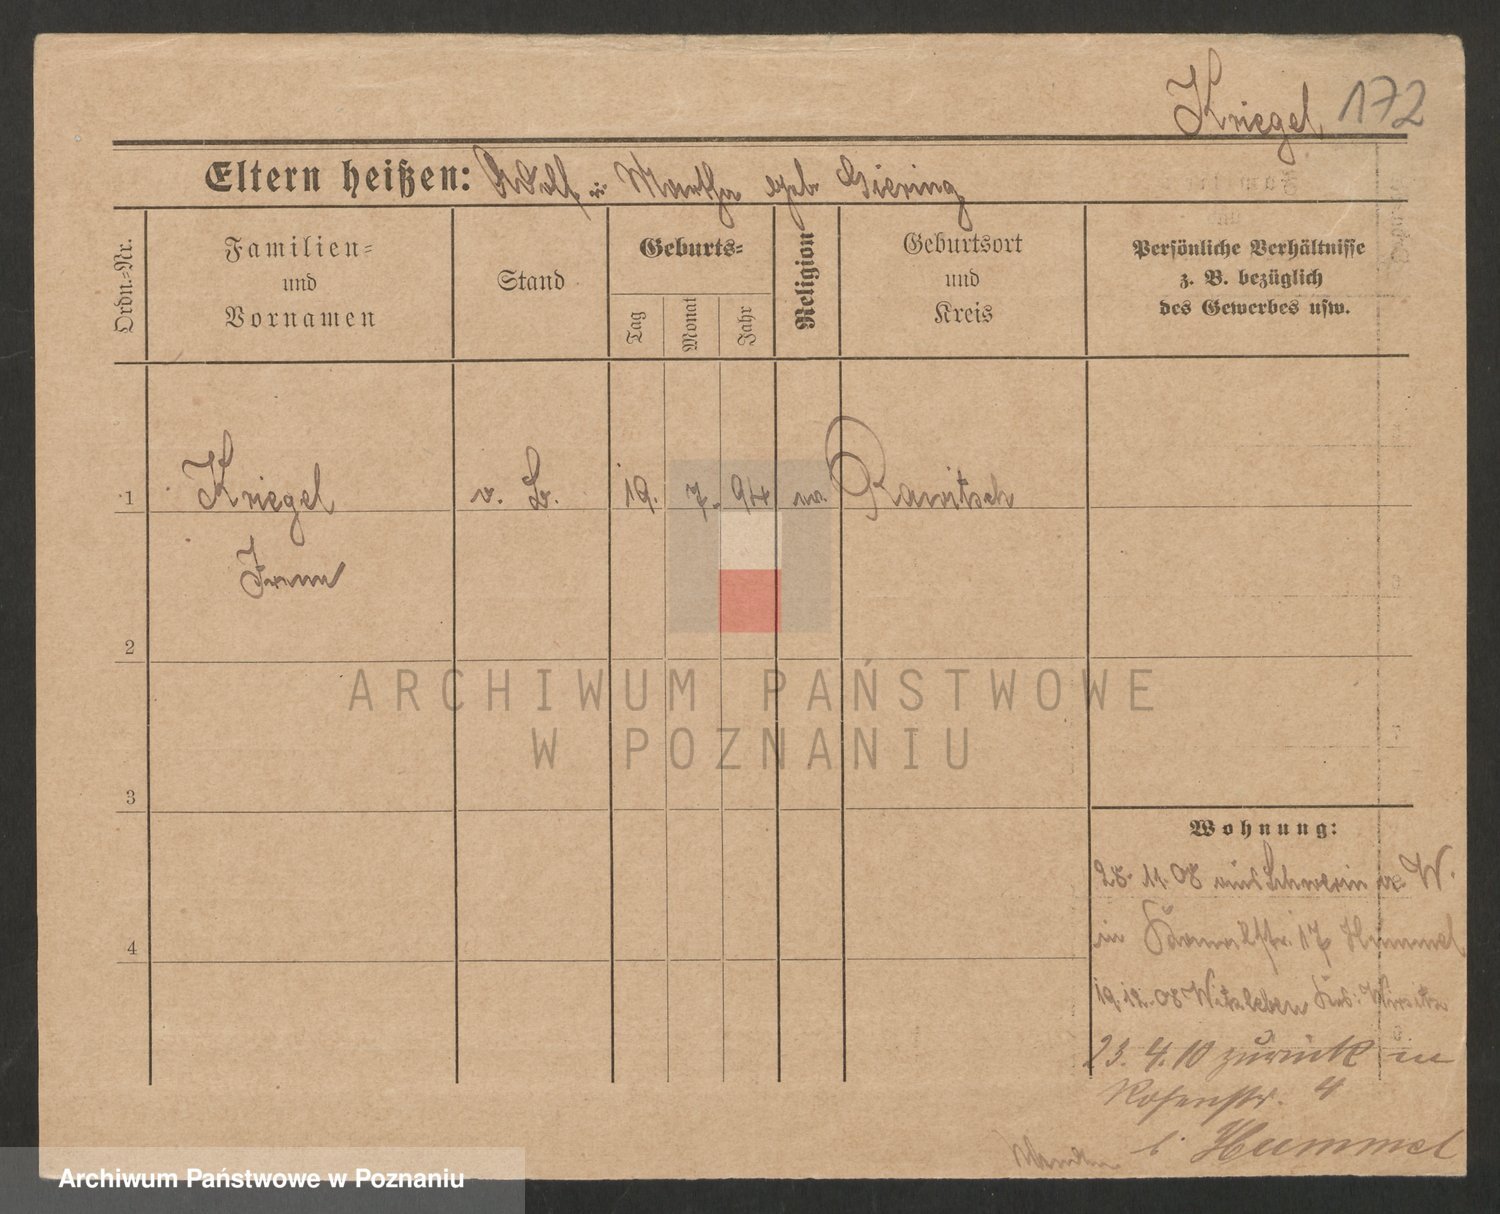 Kriegel 172
Eltern heißen: Adolf u. Martha geb. Giering
Ordn.-Nr.
Familien-
und
Vornamen
Stand
Geburts-
Tag
Monat
Jahr
Religion
Geburtsort
und
Kreis
Persönliche Verhältnisse
z. B. bezüglich
des Gewerbes usw.
1 Kriegel v. B. 19. 7. 94 ev. Rawitsch
2
3
4
ARCHIWUM PAŃSTWOWE
W POZNANIU
Wohnung:
28. 11. 08 aus Schwerin a. W.
in 17 Hummel
19. 12. 08 Witzleben Krs. Wirsitz
23. 4. 10 zurück in
Rosenstr. 4
b. Hummel
Archiwum Państwowe w Poznaniu